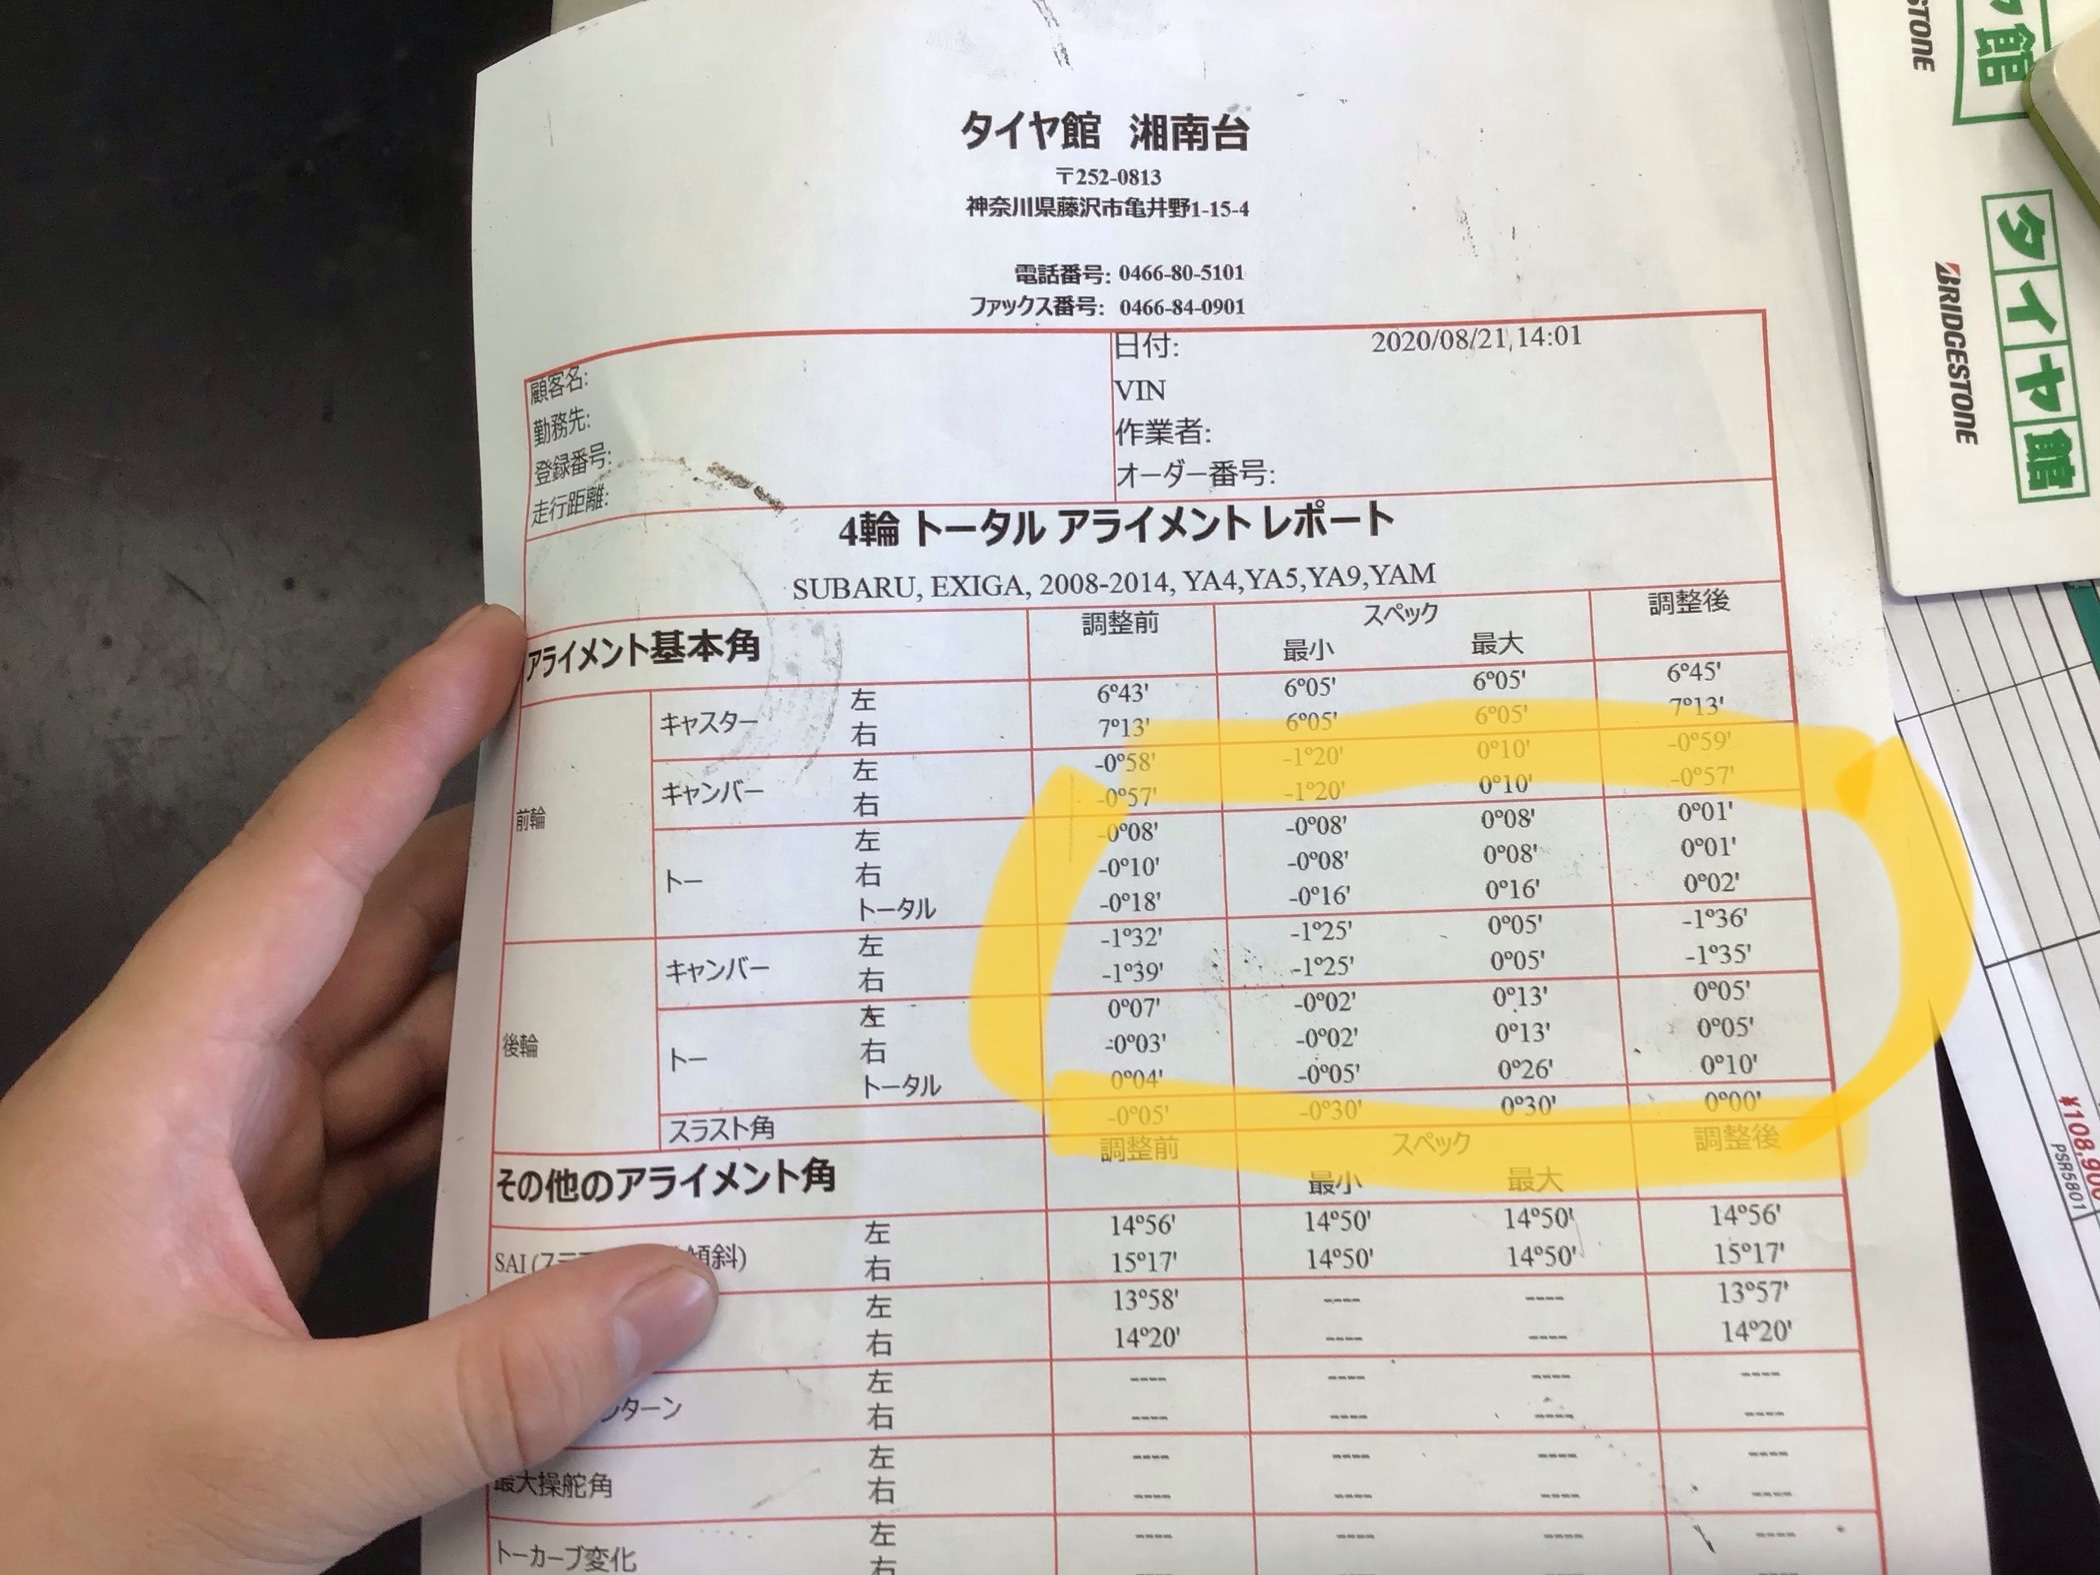 タイヤ館 湘南台
〒252-0813
神奈川県藤沢市亀井野1-15-4
電話番号: 0466-80-5101
ファックス番号: 0466-84-0901
顧客名:
勤務先:
登録番号:
走行距離:
日付: 2020/08/21,14:01
VIN
作業者:
オーダー番号:
4輪 トータル アライメント レポート
SUBARU, EXIGA, 2008-2014, YA4,YA5,YA9,YAM
アライメント基本角 調整前 スペック 調整後
最小 最大
前輪 キャスター 左 6º43' 6º05' 6º05' 6º45'
右 7º13' 6º05' 6º05' 7º13'
キャンバー 左 -0º58' -1º20' 0º10' -0º59'
右 -0º57' -1º20' 0º10' -0º57'
トー 左 -0º08' -0º08' 0º08' 0º01'
右 -0º10' -0º08' 0º08' 0º01'
トータル -0º18' -0º16' 0º16' 0º02'
後輪 キャンバー 左 -1º32' -1º25' 0º05' -1º36'
右 -1º39' -1º25' 0º05' -1º35'
トー 左 0º07' -0º02' 0º13' 0º05'
右 -0º03' -0º02' 0º13' 0º05'
トータル 0º04' -0º05' 0º26' 0º10'
スラスト角 -0º05' -0º30' 0º30' 0º00'
その他のアライメント角 調整前 スペック 調整後
最小 最大
SAI 傾斜) 左 14º56' 14º50' 14º50' 14º56'
右 15º17' 14º50' 14º50' 15º17'
左 13º58' ---- ---- 13º57'
右 14º20' ---- ---- 14º20'
ターン 左 ---- ---- ---- ----
右 ---- ---- ---- ----
最大操舵角 左 ---- ---- ---- ----
右 ---- ---- ---- ----
トーカーブ変化 左 ---- ---- ---- ----
右
館
STONE
タイヤ館
BRIDGESTONE
¥108,900
PSR5801